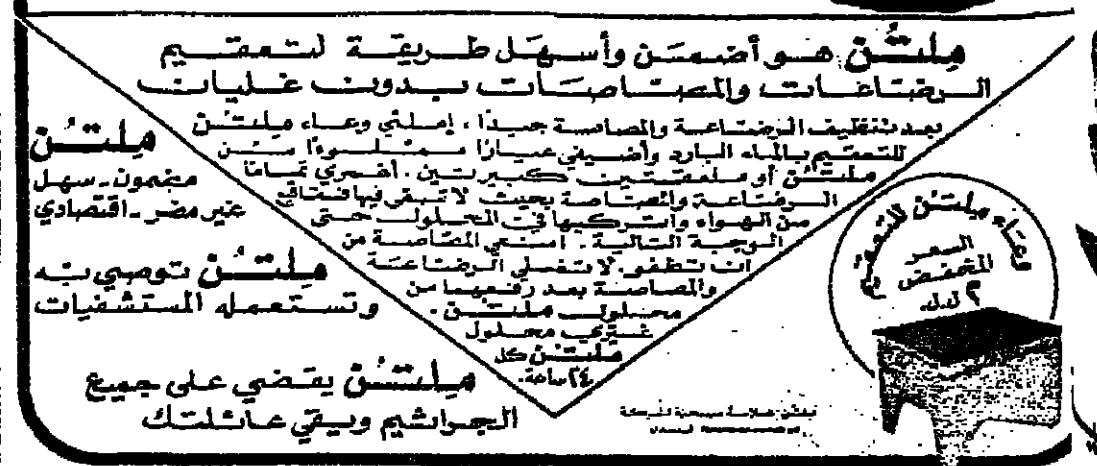 ملتن هو أضمن وأسهل طريقة لتعقيم
الرضاعات والمصاصات بدون غليان
بعد تنظيف الرضاعة والمصاصة جيدا، إملئي وعاء ملتن
للتعقيم بالماء البارد وأضيفي عيارا مملوءا من
ملتن أو ملعقتين كبيرتين. أغمري تماما
الرضاعة والمصاصة بحيث لا تبقى فيها فقاقيع
من الهواء واتركيها في المحلول حتى
الوجبة التالية. امنعي المصاصة من
ان تطفو. لا تغسلي الرضاعة
والمصاصة بعد رفعهما من
محلول ملتن.
غيري محلول
ملتن كل
٢٤ ساعة.
ملتن
مضمون - سهل
غير مضر - اقتصادي
ملتن توصي به
وتستعمله المستشفيات
ملتن يقضي على جميع
الجراثيم ويقي عائلتك
وعاء ملتن للتعقيم
السعر
المخفض
٣ ل.ل.
ملتن علامة مسجلة لشركة